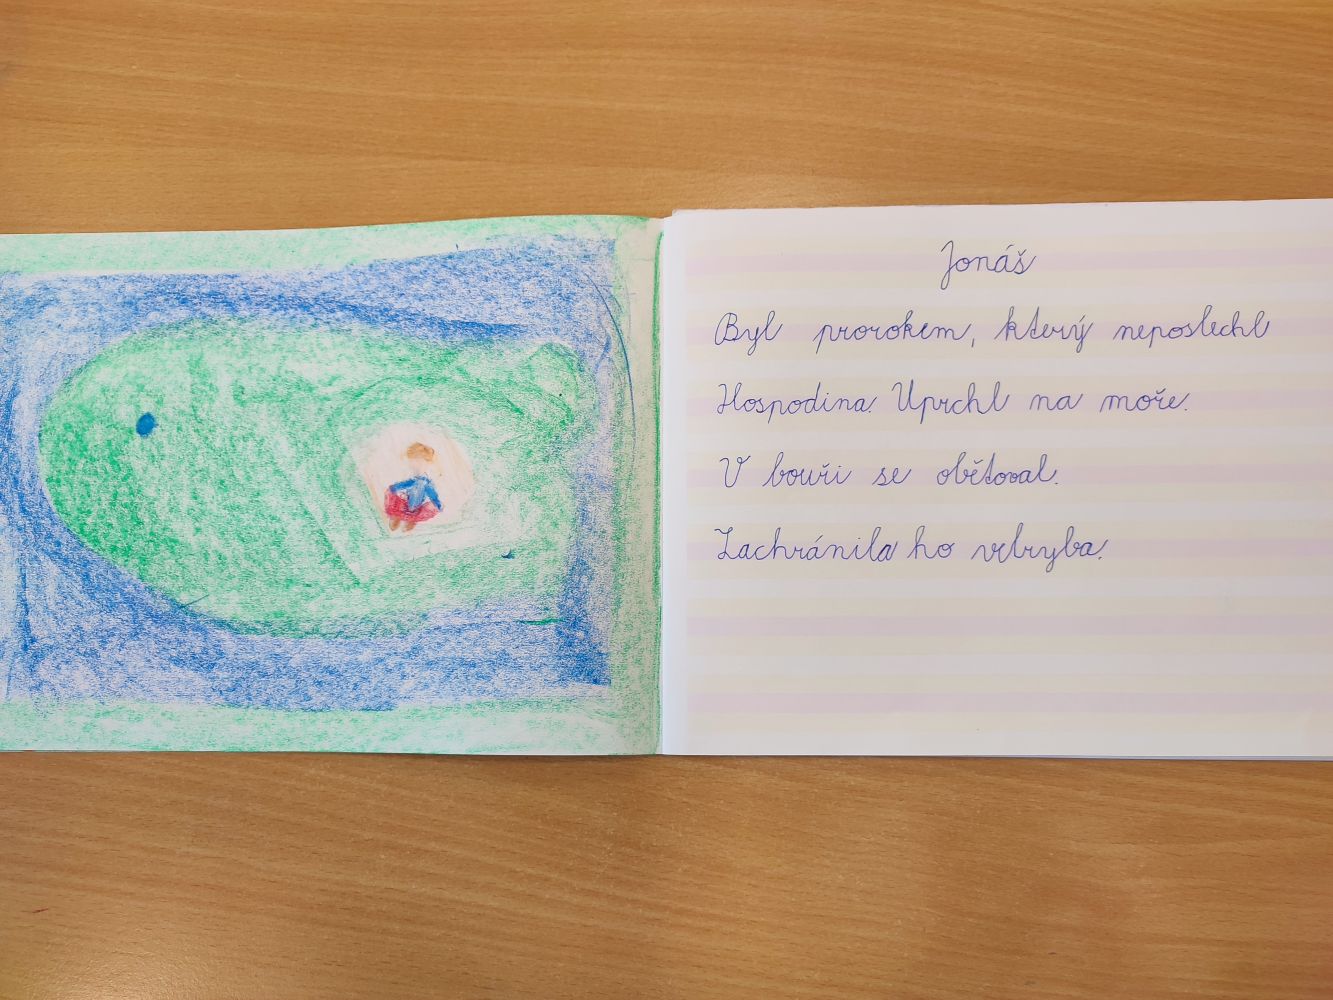 Jonáš
Byl prorokem, který neposlechl
Hospodina. Uprchl na moře.
V bouři se obětoval.
Zachránila ho velryba.